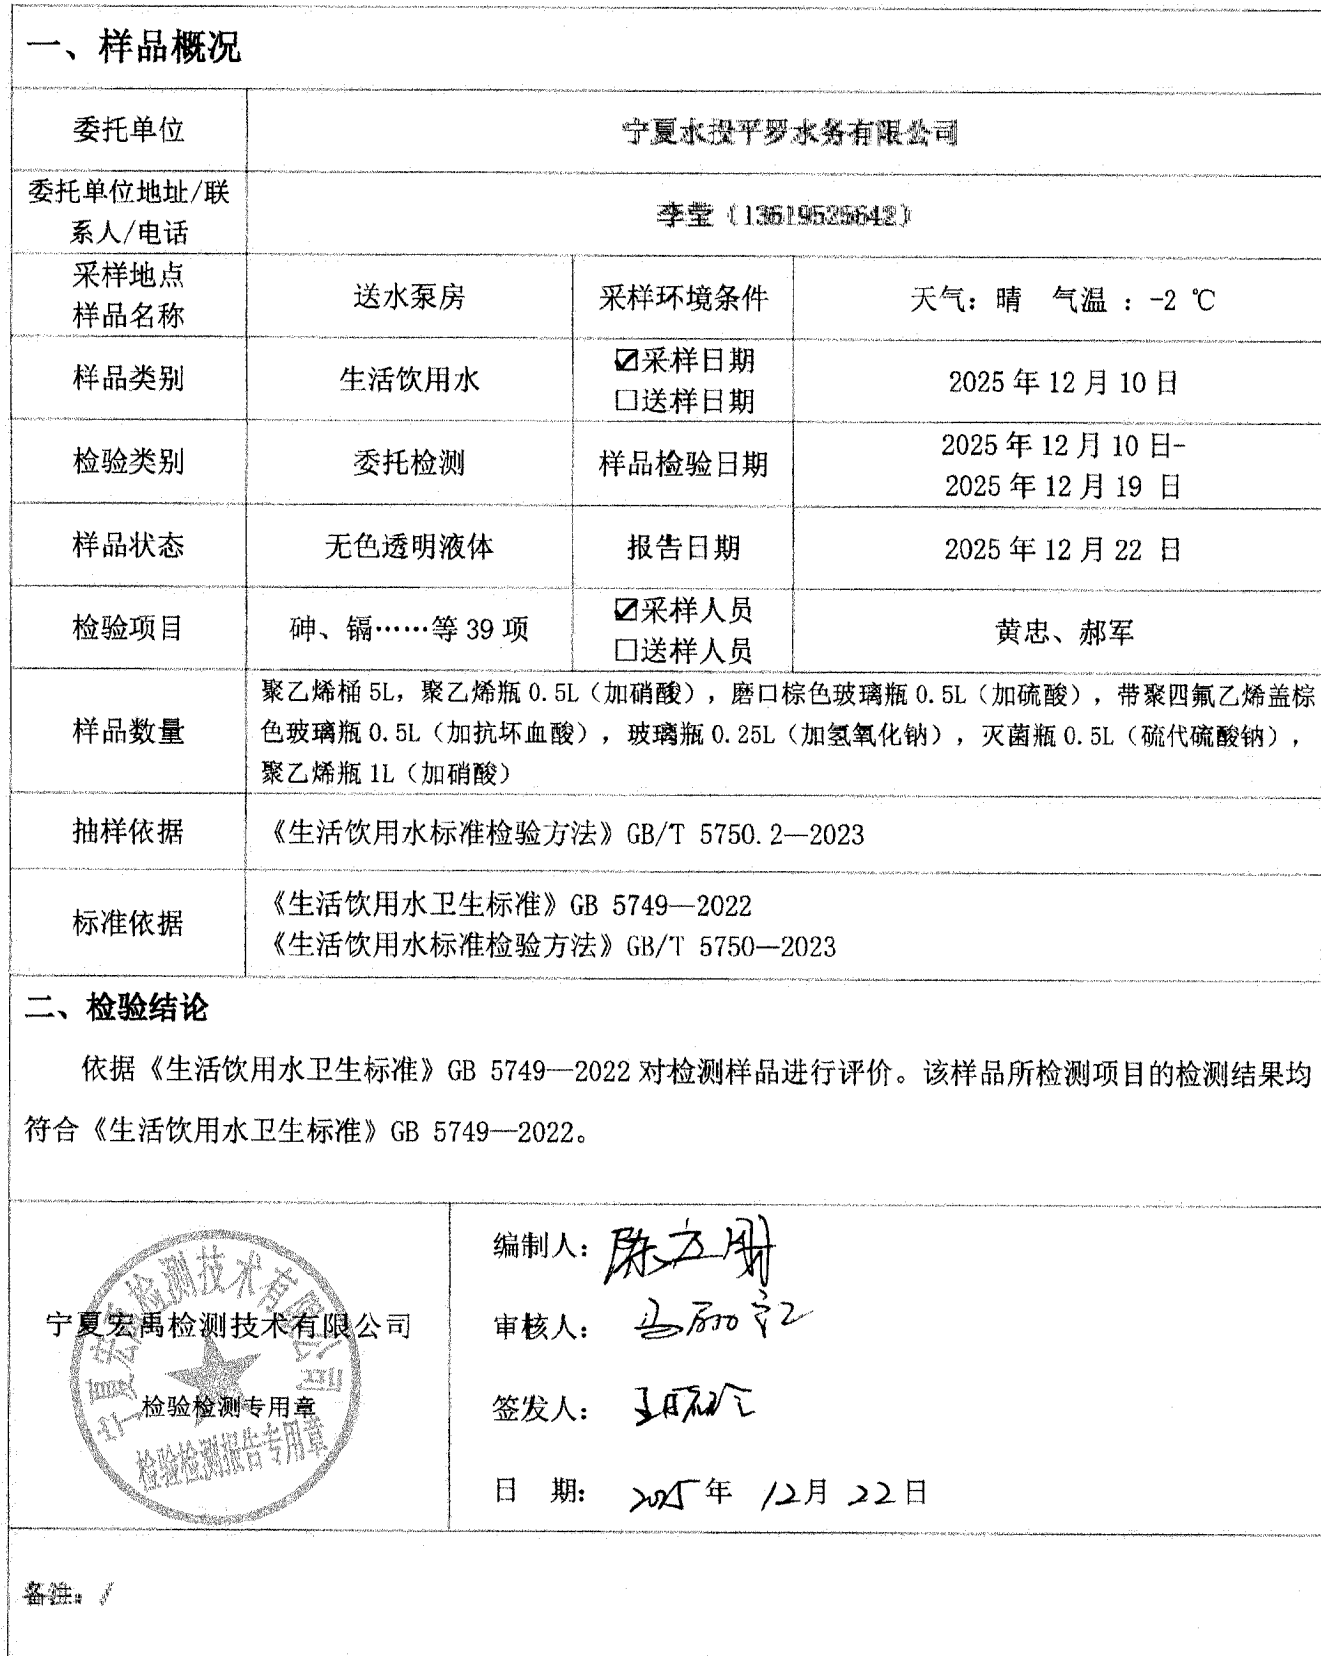 一、样品概况
委托单位
宁夏水投平罗水务有限公司
委托单位地址/联
系人/电话
李莹（13619525642）
采样地点
样品名称
送水泵房
采样环境条件
天气：晴 气温 ：-2 ℃
样品类别
生活饮用水
☑采样日期
□送样日期
2025 年 12 月 10 日
检验类别
委托检测
样品检验日期
2025 年 12 月 10 日-
2025 年 12 月 19 日
样品状态
无色透明液体
报告日期
2025 年 12 月 22 日
检验项目
砷、镉……等 39 项
☑采样人员
□送样人员
黄忠、郝军
样品数量
聚乙烯桶 5L，聚乙烯瓶 0.5L（加硝酸），磨口棕色玻璃瓶 0.5L（加硫酸），带聚四氟乙烯盖棕
色玻璃瓶 0.5L（加抗坏血酸），玻璃瓶 0.25L（加氢氧化钠），灭菌瓶 0.5L（硫代硫酸钠），
聚乙烯瓶 1L（加硝酸）
抽样依据
《生活饮用水标准检验方法》GB/T 5750.2—2023
标准依据
《生活饮用水卫生标准》GB 5749—2022
《生活饮用水标准检验方法》GB/T 5750—2023
二、检验结论
依据《生活饮用水卫生标准》GB 5749—2022 对检测样品进行评价。该样品所检测项目的检测结果均
符合《生活饮用水卫生标准》GB 5749—2022。
宁夏宏禹检测技术有限公司
检验检测专用章
宁夏宏禹检测技术有限公司
检验检测报告专用章
编制人：
审核人：
签发人：
日 期： 2025 年 12 月 22 日
备注：/